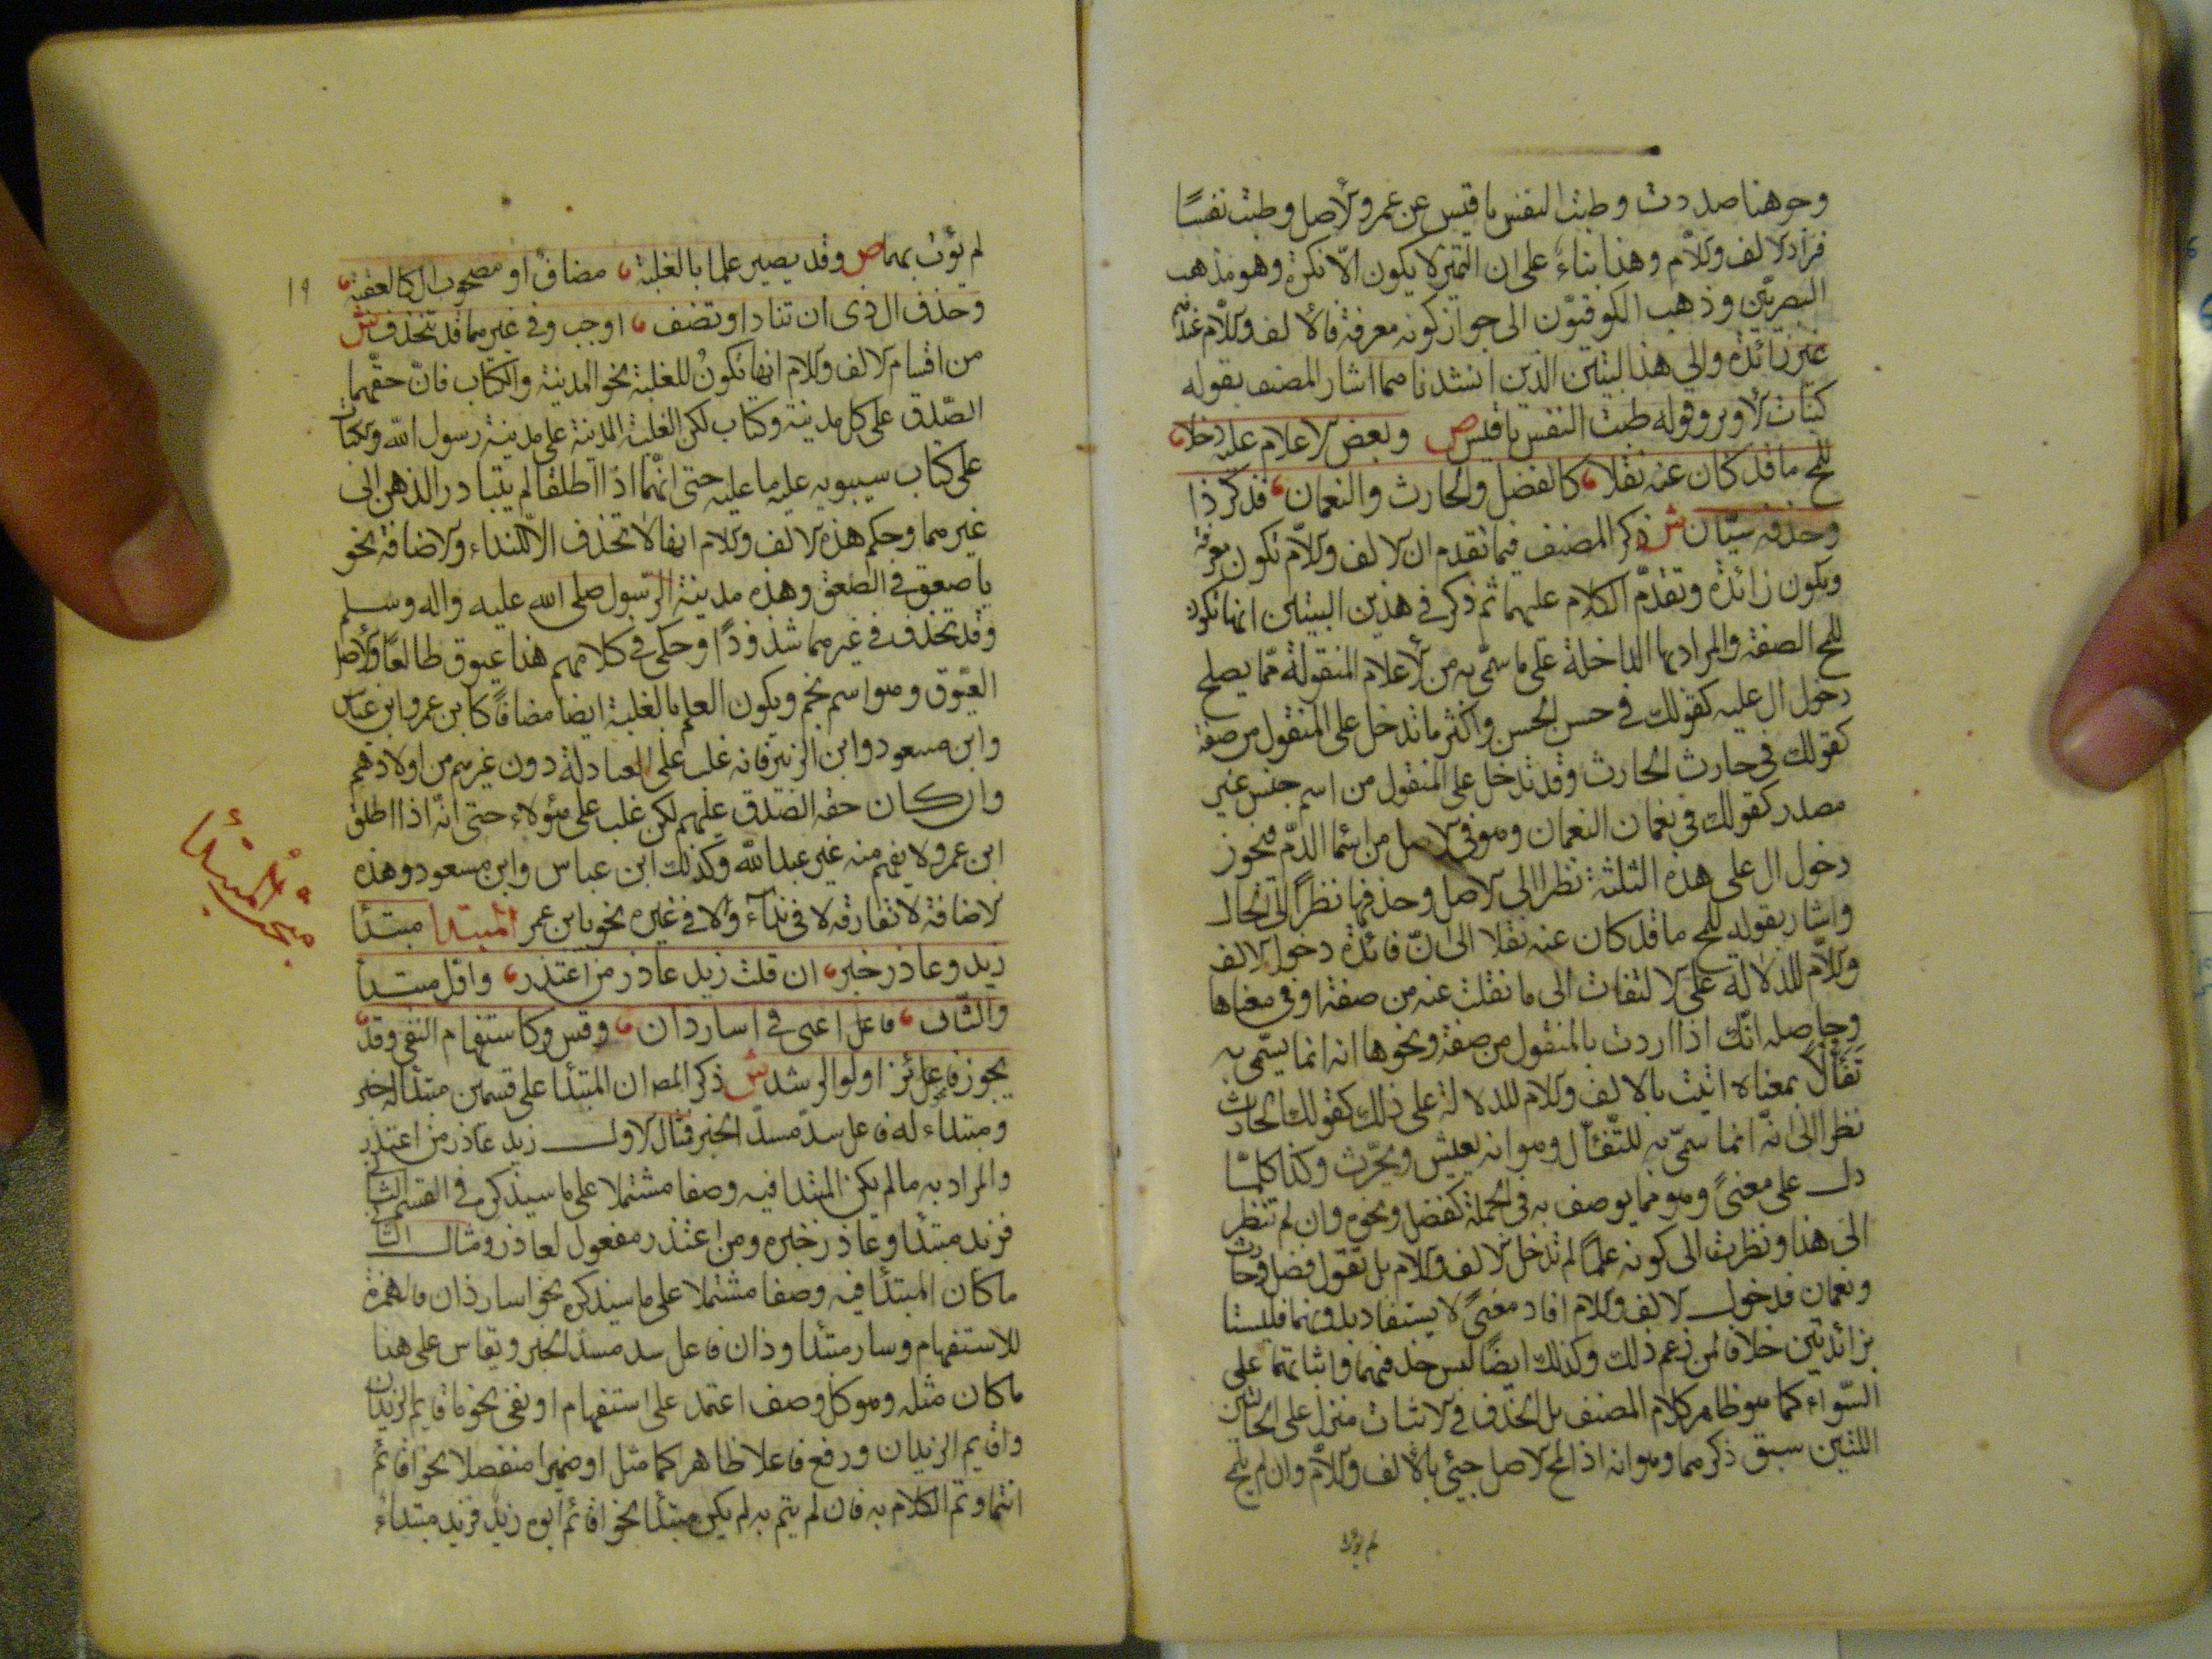 وجوهنا صددت وطبت النفس يا قيس عن عمرو والاصل وطبت نفسًا
فزاد الالف واللام وهذا بناءً على ان التميز لا يكون الا نكرة وهو مذهب
البصريّين وذهب الكوفيّون الى جواز كونه معرفة فالالف واللام عندهم
غير زائدة والى هذا البيتين الذين انشدناهما اشار المصنف بقوله
كبنات الاوبر وقوله طبت النفس يا قيس ص وبعض الاعلام عليه دخلا
للمح ما قد كان عنه نقلا كالفضل والحارث والنعمان فذكر ذا
وحذفه سيّان ش ذكر المصنف فيما تقدم ان الالف واللام تكون معرفة
وتكون زائدة وتقدّم الكلام عليهما ثم ذكر في هذين البيتين انها تكون
للمح الصفة والمراد بها الداخلة على ما سمّى به من الاعلام المنقولة ممّا يصلح
دخول ال عليه كقولك في حسن الحسن واكثر ما تدخل على المنقول من صفة
كقولك في حارث الحارث وقد تدخل على المنقول من اسم جنس غير
مصدر كقولك في نعمان النعمان وهو في الاصل من اسما الدّم فيجوز
دخول ال على هذه الثلثة نظرا الى الاصل وحذفها نظرًا الى الحال
واشار بقوله للمح ما قد كان عنه نقلا الى انّ فائدة دخول الالف
واللام للدلالة على الالتفات الى ما نقلت عنه من صفة او في معناها
وحاصله انّك اذا اردت بالمنقول من صفة ونحوها انه انما يسمّى به
تفألا بمعناه اتيت بالالف واللام للدلالة على ذلك كقولك الحارث
نظرا الى انّه انما سمّى به للتّفئّال وهو انه يعيش ويحرّث وكذا كلما
دل على معنىً وهو مما يوصف به في الجملة كفضل ونحوه وان لم تنظر
الى هذا ونظرت الى كونه علمًا لم تدخل الالف واللام بل تقول فضل وحارث
ونعمان فدخول الالف واللام افاد معنىً لا يستفاد بدونهما فليستا
بزائدتين خلافا لمن زعم ذلك وكذلك ايضًا ليس حذفهما واثباتهما على
السّواء كما هو ظاهر كلام المصنف بل الحذف في الاثبات منزل على الحالتين
اللتين سبق ذكرهما وهو انه اذا لمح الاصل جيئ بالالف واللام وان لم يلمح
لم يؤت
١٩
لم يؤت بهما ص وقد يصير علما بالغلبة مضافٌ او مصحوب ال كالعقبة
وحذف ال ذى ان تناد او تضف اوجب وفي غيرهما قد تنحذف ش
من اقسام الالف واللام انها تكونُ للغلبة نحو المدينة والكتاب فانّ حقّهما
الصّدق على كل مدينة وكتاب لكن الغلبة المدينة على مدينة رسول الله والكتاب
على كتاب سيبويه عليه ما عليه حتى انّهما اذا اطلقا لم يتبادر الذهن الى
غيرهما وحكم هذه الالف واللام انها لا تحذف الا للنداء والاضافة نحو
يا صعق في الصعق وهذه مدينة الرسول صلى الله عليه واله وسلم
وقد تحذف في غيرهما شذوذًا وحكى في كلامهم هذا عيوق طالعًا والاصل
العيّوق وهو اسم نجم ويكون العلم بالغلبة ايضا مضافًا كابن عمر وابن عباس
وابن مسعود وابن الزبير فانه غلب على العبادلة دون غيرهم من اولادهم
وان كان حقه الصّدق عليهم لكن غلب على هؤلاء حتى انّه اذا اطلق
ابن عمر ولا يفهم منه غير عبد الله وكذلك ابن عباس وابن مسعود وهذه
الاضافة لا تفارقه لا في نداء ولا في غيره نحو يا ابن عمر المبتدا مبتدأ
زيد وعاذر خبر ان قلت زيد عاذر من اعتذر واوّل مبتدأ
والثان فاعل اغنى في اسار ذان وقس وكاستفهام النفى وقد
يجوز فاعل نحو فائز اولوا الرشد ش ذكر المص ان المبتدا على قسمين مبتدا له خبر
ومبتداء له فاعل سدّ مسدّ الخبر فمثال الاول زيد عاذر من اعتذر
والمراد به ما لم يكن المبتدا فيه وصفا مشتملا على ما سيذكره في القسم الثانى
فزيد مبتدأ وعاذر خبره ومن اعتذر مفعول لعاذر ومثال الثانى
ما كان المبتدأ فيه وصفا مشتملا على ما سيذكره نحو اسار ذان فالهمزة
للاستفهام وسار مبتدا وذان فاعل سد مسدّ الخبر ويقاس على هذا
ما كان مثله وهو كل وصف اعتمد على استفهام او نفى نحو ما قايم الزيدان
واقايم الزيدان ورفع فاعلا ظاهرا كما مثل او ضميرا منفصلا نحو اقائم
انتما وتم الكلام به فان لم يتم به لم يكن مبتدأ نحو اقائم ابوه زيد فزيد مبتداء
مبحث المبتدأ